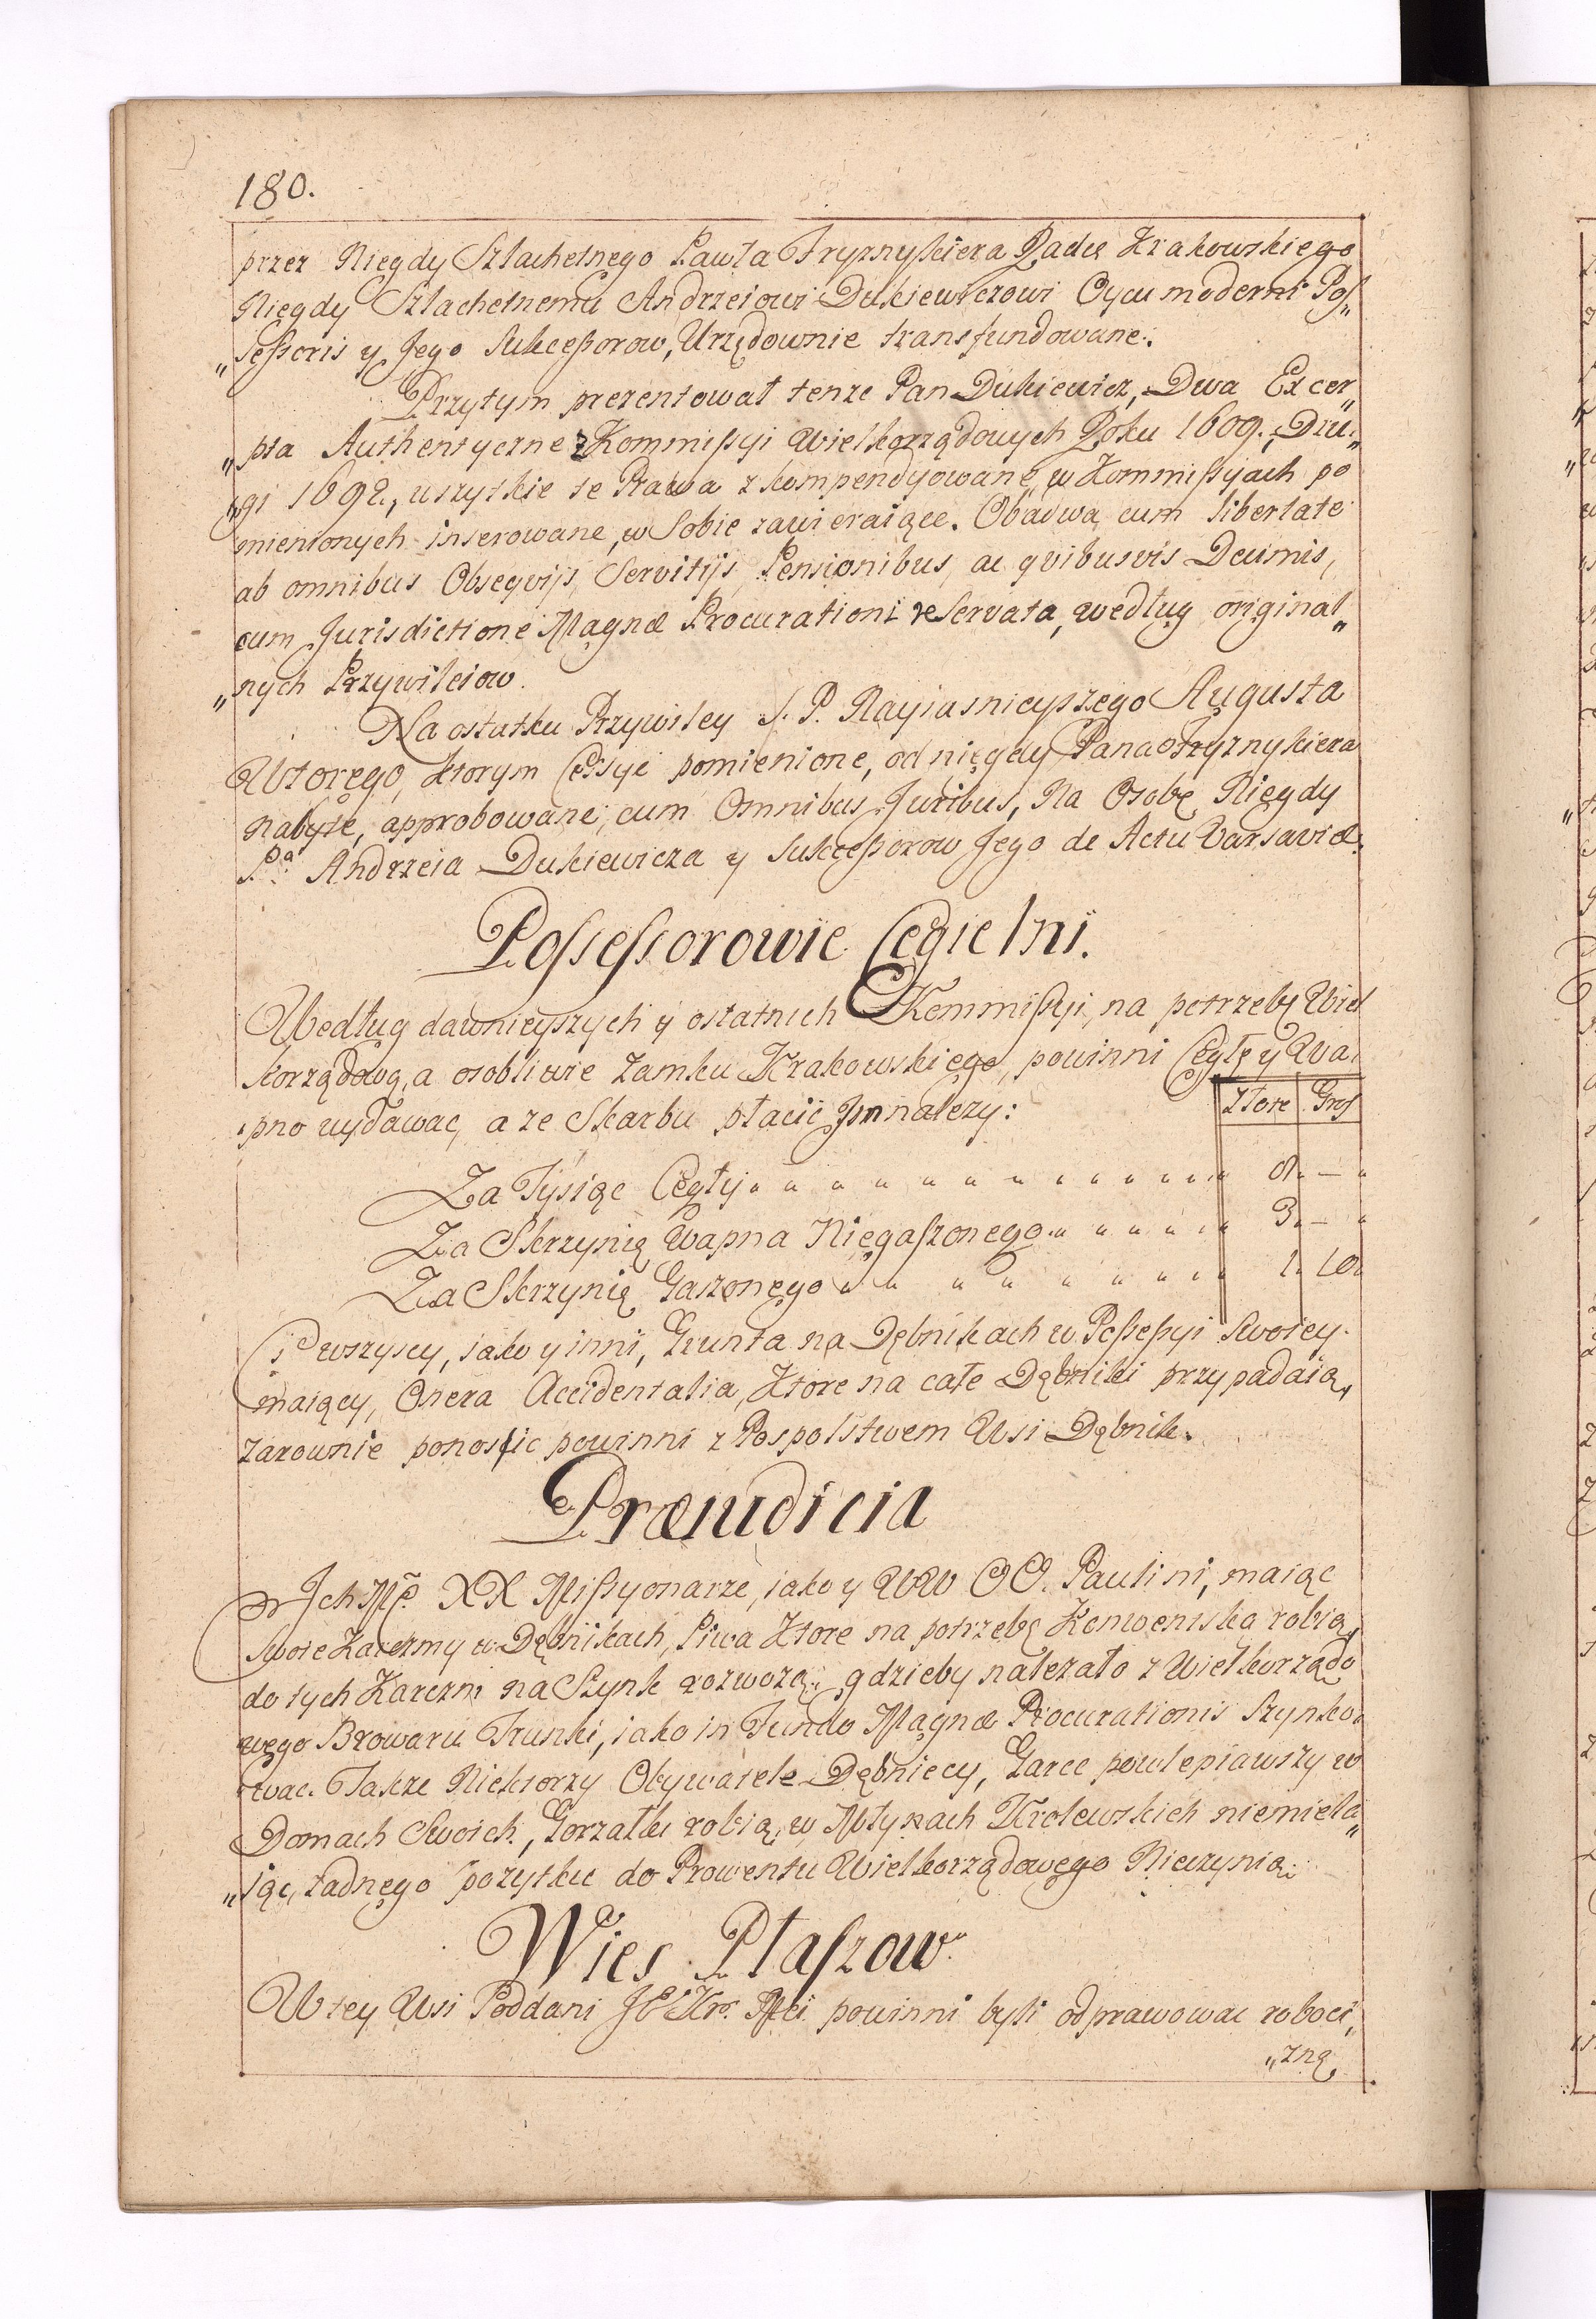 180.
przez Niegdy Szlachetnego Pawła Fryznykiera Radcę Krakowskiego
Niegdy Szlachetnemu Andrzeiowi Dukiewiczowi Oycu moderni Pos„
„sessoris y Jego Sukcessorow, Urzędownie transfundowane.
Przytym prezentował tenze Pan Dukiewicz, Dwa Excer„
„pta Authentyczne z Kommissyi Wielkorządowych Roku 1609., Dru„
„gi 1692., wszytkie te Prawa z kompendyowane, w Kommissyach po
mienionych inserowane, w Sobie zawieraiące. Obadwa cum libertate
ab omnibus Obseqvijs, Servitijs, Pensionibus, ac qvibusvis Decimis,
cum Jurisdictione Magnæ Procurationi reServata, według original„
„nych Przywileiow.
Na ostatku Przywiley S. P. Nayiasnieyszego Augusta
Wtorego, Ktorym Cessye pomienione, od niegdy Pana Fryznykiera
nabyte, approbowane, cum Omnibus Juribus, Na Osobę Niegdy
P.ª Andrzeia Dukiewicza y Sukcessorow Jego de Actu Varsaviæ.
Possessorowie Cegielni.
Według dawnieyszych y ostatnich Kommissyi, na potrzebę Wiel
korządową, a osobliwie Zamku Krakowskiego, powinni Cegłę y Wa„
„pno wydawac, a ze Skarbu płacić Jm nalezy:
Złote Gros
Za Tysiąc Cegły „ „ „ „ „ „ „ „ „ „ „ „ —
Za Skrzynią Wapna Niegaszonego „ „ „ „ „ 3. —
Za Skrzynią Gaszonego „ „ „ „ „ „ „ „ „ 1. 10
Ci wszyscy, iako y inni, Grunta na Dębnikach w Possessyi Swoiey
maiący, Onera Accidentalia, Ktore na całe Dębniki przypadaią,
zarownie ponosic powinni z Pospolstwem Wsi Dębnik.
Præiudicia
Ich Mć. XX Missyonarze, iako y WW OO. Paulini, maiąc
swoie Karczmy w Dębnikach, Piwa Ktore na potrzebę Konwentską robią,
do tych Karczm na Szynk rozwożą, gdzieby nalezało z Wielkorządo
wego Browaru Trunki, iako in Fundo Magnæ Procurationis Szynko„
wac. Takze Niektorzy Obywatele Dębniecy, Garce powlepiawszy w
Domach Swoich, Gorzałki robią, w Młynach Krolewskich niemiela„
„iąc, zadnego pozytku do Prowentu Wielkorządowego Nieczynią.
Wies Płaszow
W tey Wsi Poddani J. Kr. Mći powinni byli odprawowac roboci„
„znę,